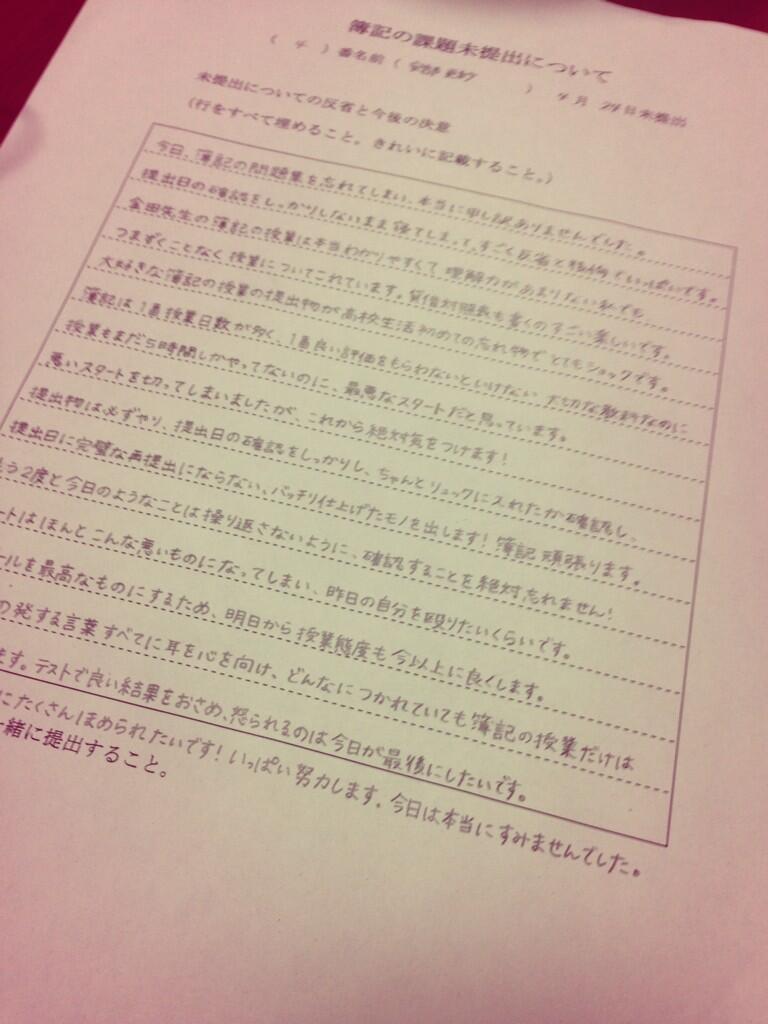 簿記の課題未提出について
( 4 ) 番名前 ( ) 4 月 24 日未提出
未提出についての反省と今後の決意
(行をすべて埋めること。きれいに記載すること。)
今日、簿記の問題集を忘れてしまい、本当に申し訳ありませんでした。
提出日の確認をしっかりしないまま寝てしまって、すごく反省と後悔でいっぱいです。
金田先生の簿記の授業は本当わかりやすくて理解力があまりない私でも、
つまずくことなく授業についてこれています。貸借対照表も書くのすごい楽しいです。
大好きな簿記の授業の提出物が高校生活初めての忘れ物でとてもショックです。
簿記は1番授業日数が多く、1番良い評価をもらわないといけない大切な教科なのに
授業もまだ5時間しかやってないのに、最悪なスタートだと思っています。
悪いスタートを切ってしまいましたが、これから絶対気をつけます!
提出物は必ずやり、提出日の確認をしっかりし、ちゃんとリュックに入れたか確認し、
提出日に完璧な再提出にならない、バッチリ仕上げたモノを出します!簿記頑張ります。
う2度と今日のようなことは繰り返さないように、確認することを絶対忘れません!
ートはほんとこんな悪いものになってしまい、昨日の自分を殴りたいくらいです。
ールを最高なものにするため、明日から授業態度も今以上に良くします。
の発する言葉すべてに耳を心を向け、どんなにつかれていても簿記の授業だけは
ます。テストで良い結果をおさめ、怒られるのは今日が最後にしたいです。
にたくさんほめられたいです!いっぱい努力します。今日は本当にすみませんでした。
緒に提出すること。